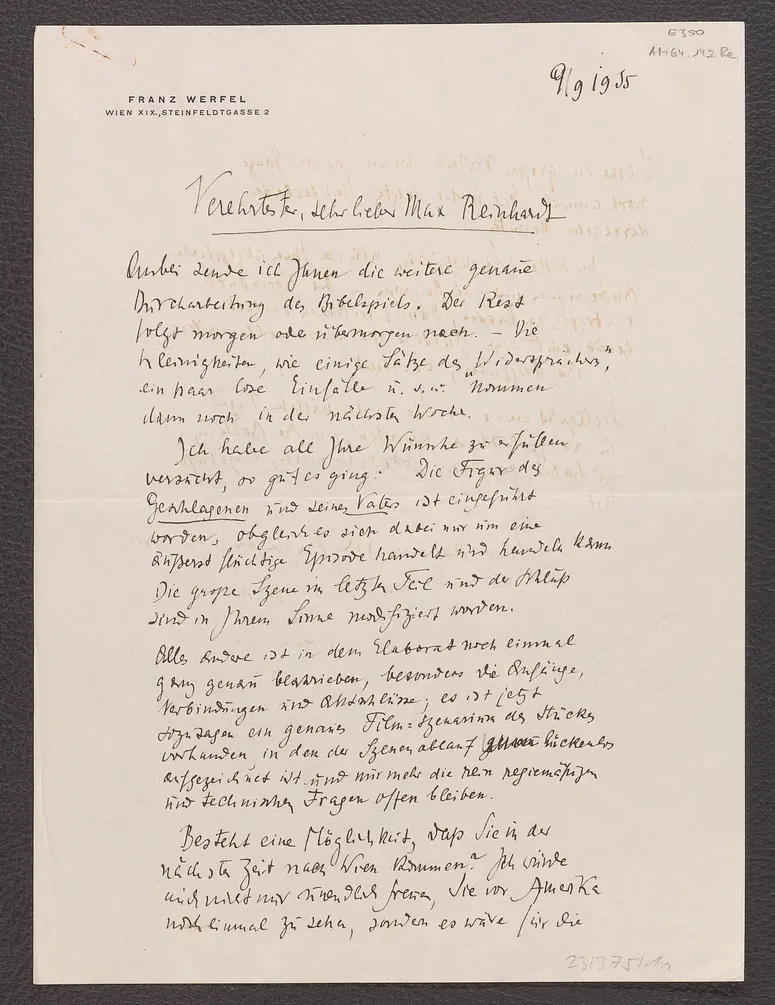 E350
AM 64.142 Re
9/9 1935
FRANZ WERFEL
WIEN XIX., STEINFELDTGASSE 2
Verehrtester, sehr lieber Max Reinhardt
Anbei sende ich Ihnen die weitere genaue
Durcharbeitung des Bibelspiels. Der Rest
folgt morgen oder übermorgen nach. – Die
Kleinigkeiten, wie einige Sätze des „Widersprechers",
ein paar lose Einfälle u. s. w. kommen
dann noch in der nächsten Woche.
Ich habe all Ihre Wünsche zu erfüllen
versucht, so gut es ging. Die Figur des
Geschlagenen und seines Vaters ist eingeführt
worden, obgleich es sich dabei nur um eine
äußerst flüchtige Episode handelt und handeln kann.
Die große Szene im letzten Teil und der Schluß
sind in Ihrem Sinne modifiziert worden.
Alles andere ist in dem Elaborat noch einmal
ganz genau beschrieben, besonders die Anfänge,
Verbindungen und Aktschlüsse; es ist jetzt
sozusagen ein genaues Film-Szenarium des Stückes
vorhanden, in den der Szenenablauf lückenlos
aufgezeichnet ist und nur mehr die rein regiemäßigen
und technischen Fragen offen bleiben.
Besteht eine Möglichkeit, daß Sie in der
nächsten Zeit nach Wien kommen? Ich würde
mich nicht nur unendlich freuen, Sie vor Amerika
noch einmal zu sehen, sondern es wäre für die
231375/1